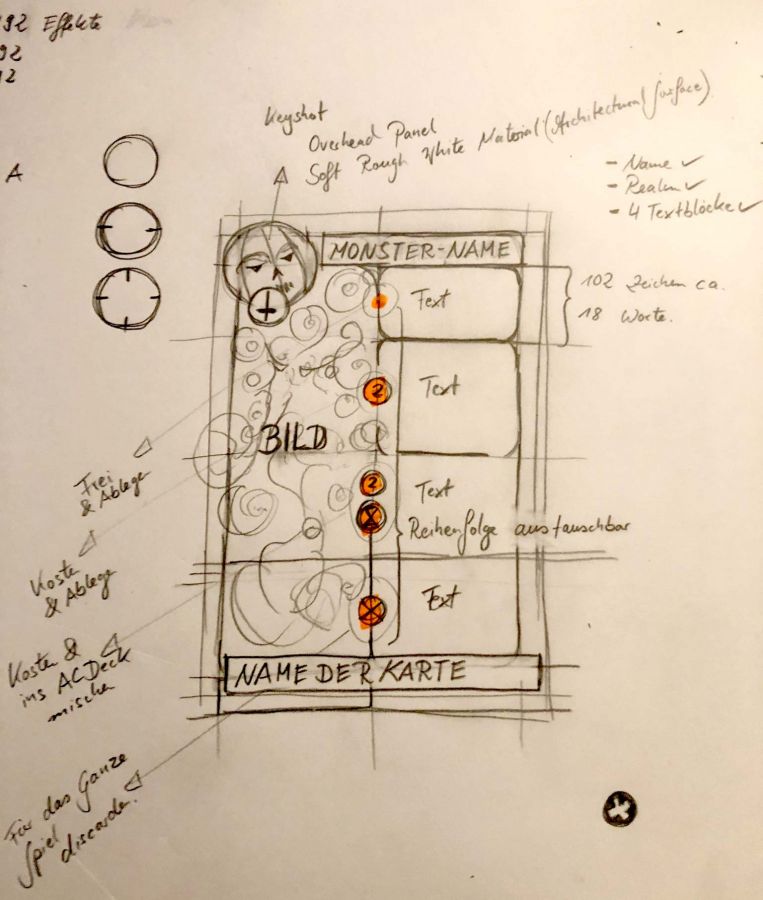 192 Effekte
92
12
Keyshot
Overhead Panel
Soft Rough White Material (Architectural Surface)
A
- Name ✓
- Realm ✓
- 4 Textblöcke ✓
MONSTER-NAME
Text
102 Zeichen ca.
18 Worte.
2
Text
BILD
Frei
& Ablege
2
Text
Reihenfolge austauschbar
Koste
& Ablege
Text
Kosten &
ins ACDeck
mischen
NAME DER KARTE
Für das Ganze
Spiel
discarde.